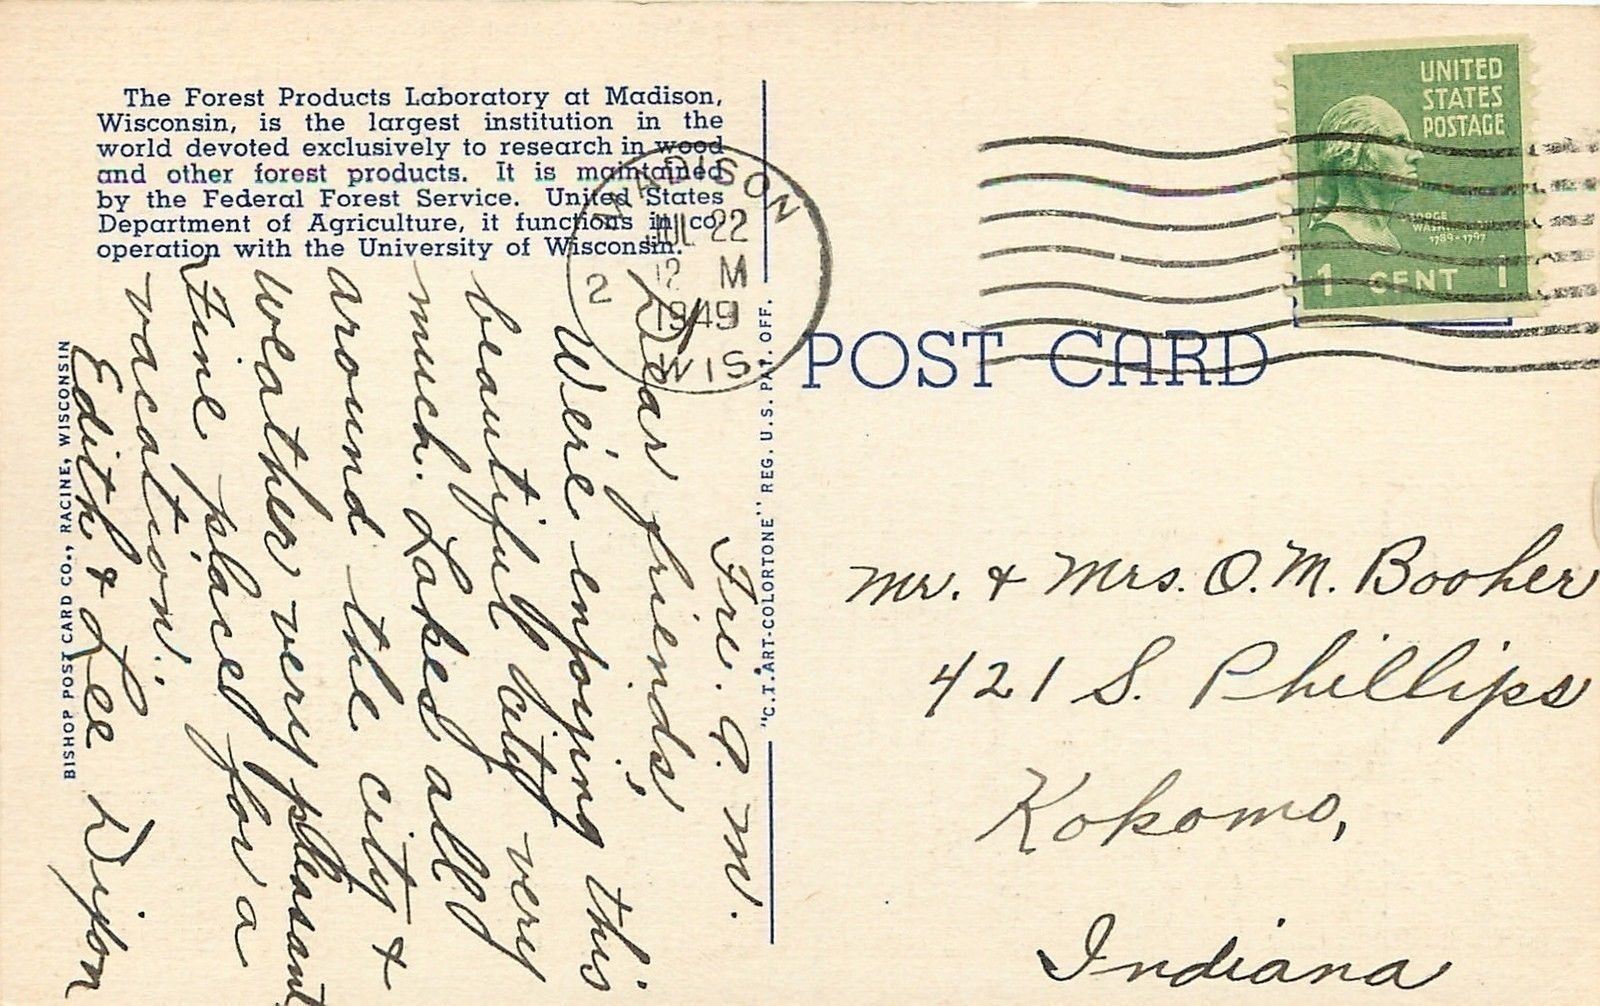 The Forest Products Laboratory at Madison,
Wisconsin, is the largest institution in the
world devoted exclusively to research in wood
and other forest products. It is maintained
by the Federal Forest Service. United States
Department of Agriculture, it functions in co
operation with the University of Wisconsin.
MADISON
JUL 22
12 M
1949
2
WIS.
UNITED
STATES
POSTAGE
GEORGE
WASHINGTON
1789-1797
1 CENT 1
POST CARD
Fri. P. M.
Dear friends,
We're enjoying this
beautiful city very
much. Lakes all
around the city &
weather very pleasant
Fine place for a
vacation.
Edith & Lee Dixon
Mr. & Mrs. O. M. Booher
421 S. Phillips
Kokomo,
Indiana
BISHOP POST CARD CO., RACINE, WISCONSIN
"C.T. ART-COLORTONE" REG. U.S. PAT. OFF.